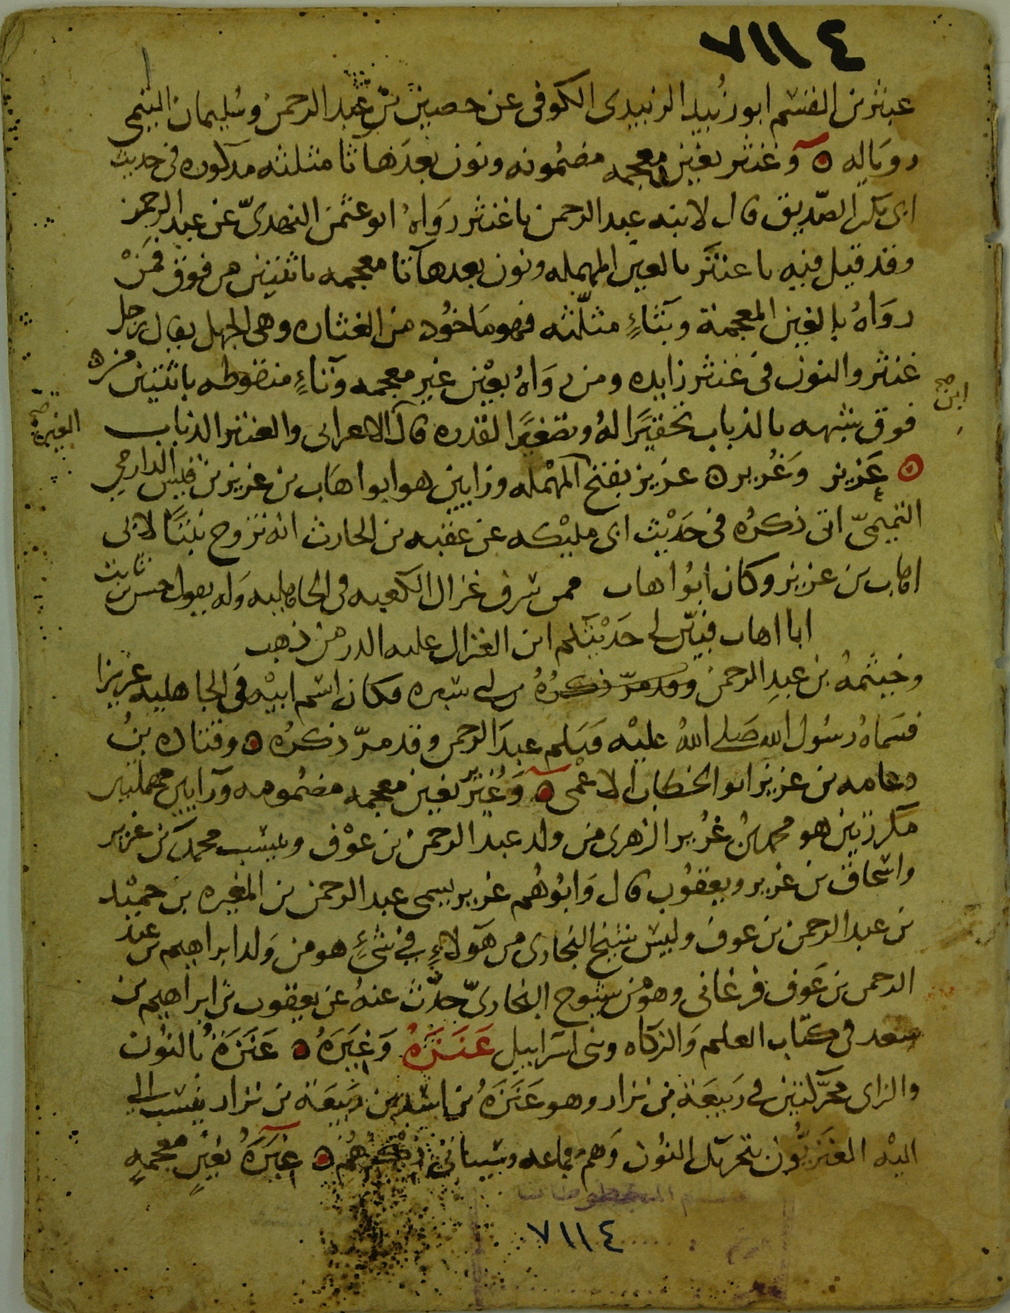 ٧١١١٤
عبثر بن القسم ابو زُبيد الزبيدى الكوفى عن حصين بن عبد الرحمن وسُليمان التيمى
رويا له ه وغنثر بغين معجمه مضمُومه ونون بعدَها ثا مثلثه مذكوره فى حديث
ابى بكر الصّديق قال لابنه عبد الرحمن يا غنثر روَاهُ ابو عثمن النهدىّ عن عبد الرحمن
وقد قيل فيه يا عنتَر بالعين المهمله ونون بعدها تا معجمه باثنتين من فوق فمَنْ
روَاهُ بالغين المعجمة وبثاءٍ مثلّثه فهو مَاخوُد من الغثاره وهى الجهل يقال رجل
غنثر والنون فى غنثر زايده ومن روَاهُ بعَيْن غير معجمه وتاءٍ منقوطه باثنتين من
فوق شبّهه بالذباب تحقيرًا لهُ وتصْغيرًا لقدره قال الاعرابى والعنتر الذباب
ابن صح
ه عَزيز وَغُرير ه عزيز بفتح المهْمله وزايين هو ابو اهَاب بن عزيز بن قيس الدارمى
التميمىّ اتى ذكرُه فى حَديْث ابى مليْكه عن عقبه بن الحارث انه تزوج بنتًا لابى
اهاب بن عزيز وكان ابُو اهاب ممن سَرق غزال الكعبه فى الجاهليه وَله يقول حسن بن ثابت
ابا اهاب فبيّن لى حَدْيثكم اين الغزال عليه الدر من ذهب
وخيثمهُ بن عبد الرحمن وقد مرّ ذكرُهُ بن ابى سبره فكان اسْم ابيْه فى الجاهليه عزيزا
فسَماهُ رسُول الله صَلى اللهُ عليْه وسَلم عبدَ الرحمن وقد مرّ ذكرُه ه وقتاده بنُ
دعامه بن عزيز ابو الخطاب الاعْمى ه وَغُرَير بغين معجمه مضمُومه ورَايين مهملتين
مكررَتين هو محمد بنُ غُرير الزهرى من ولد عبد الرحمن بن عوْف وينسب محمد بن غرير
واسْحاق بن غرير ويعقوُب قال وَابُوهُم غرير يسمى عبد الرحمن بن المغيره بن حميْد
بن عبد الرحمن بن عوف وليسَ شيخ البخارى من هَولاءِ فى شئٍ هو من وَلد ابراهيم بن عبد
الرحمن بن عَوف فرغانى وهوُ من شيوخ البخارىّ حدّث عنهُ عن يعقوب بن ابراهيم بن
سعد فى كتاب العلم وَالزكاه وبنى اسرَاييل عَنَزَهُ وَغِيَرَهُ ه عَنَزَهُ بالنوُن
والزاى محرّكتين فى رَبيعَة بن نزار وهو عَنَزَهُ بنُ اسَد بن رَبيعَة بن نزار ينسَب الى
اليْه العَنَزيّون بتحريك النوُن وَهم جماعه وسَياتى ذكرهُم ه غِيَرَهُ بغينٍ معجمهٍ
٧١١٤